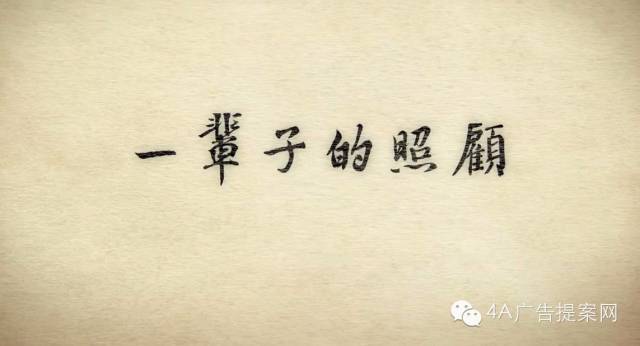 一輩子的照顧
4A广告提案网